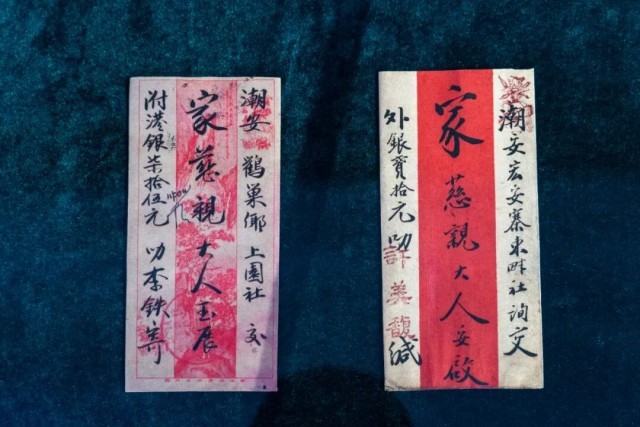 潮安 鶴巢鄉 上園社 交
家慈親大人玉展
附港銀柒拾伍元 叻李鉄
潮安宏安寨東畔社詢交
家慈親大人安啟
外銀貳拾元 叻許美馥緘